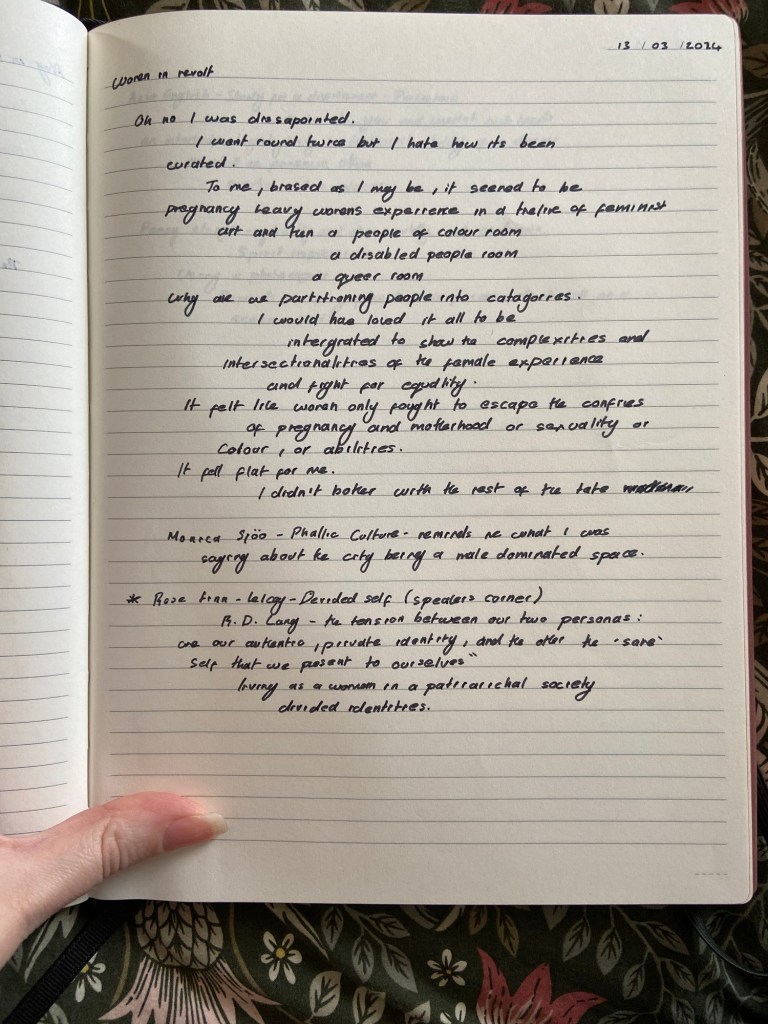 13 / 03 / 2024
Women in revolt
Oh no I was dissapointed.
I went round twice but I hate how its been
curated.
To me, biased as I may be, it seemed to be
pregnancy heavy womens experience in a timeline of feminist
art and then a people of colour room
a disabled people room
a queer room
Why are we partitioning people into catagories.
I would have loved it all to be
intergrated to show the complexities and
intersectionalities of the female experience
and fight for equality.
It felt like women only fought to escape the confines
of pregnancy and motherhood or sexuality or
colour, or abilities.
It fell flat for me.
I didn't bother with the rest of the tate
Monica Sjöo - Phallic Culture - reminds me what I was
saying about the city being a male dominated space.
* Rose - Divided self (speakers corner)
R.D. Lang - the tension between our two personas:
one our authentic, private identity, and the other the "sane"
self that we present to ourselves"
living as a woman in a patriarichal society
divided identities.